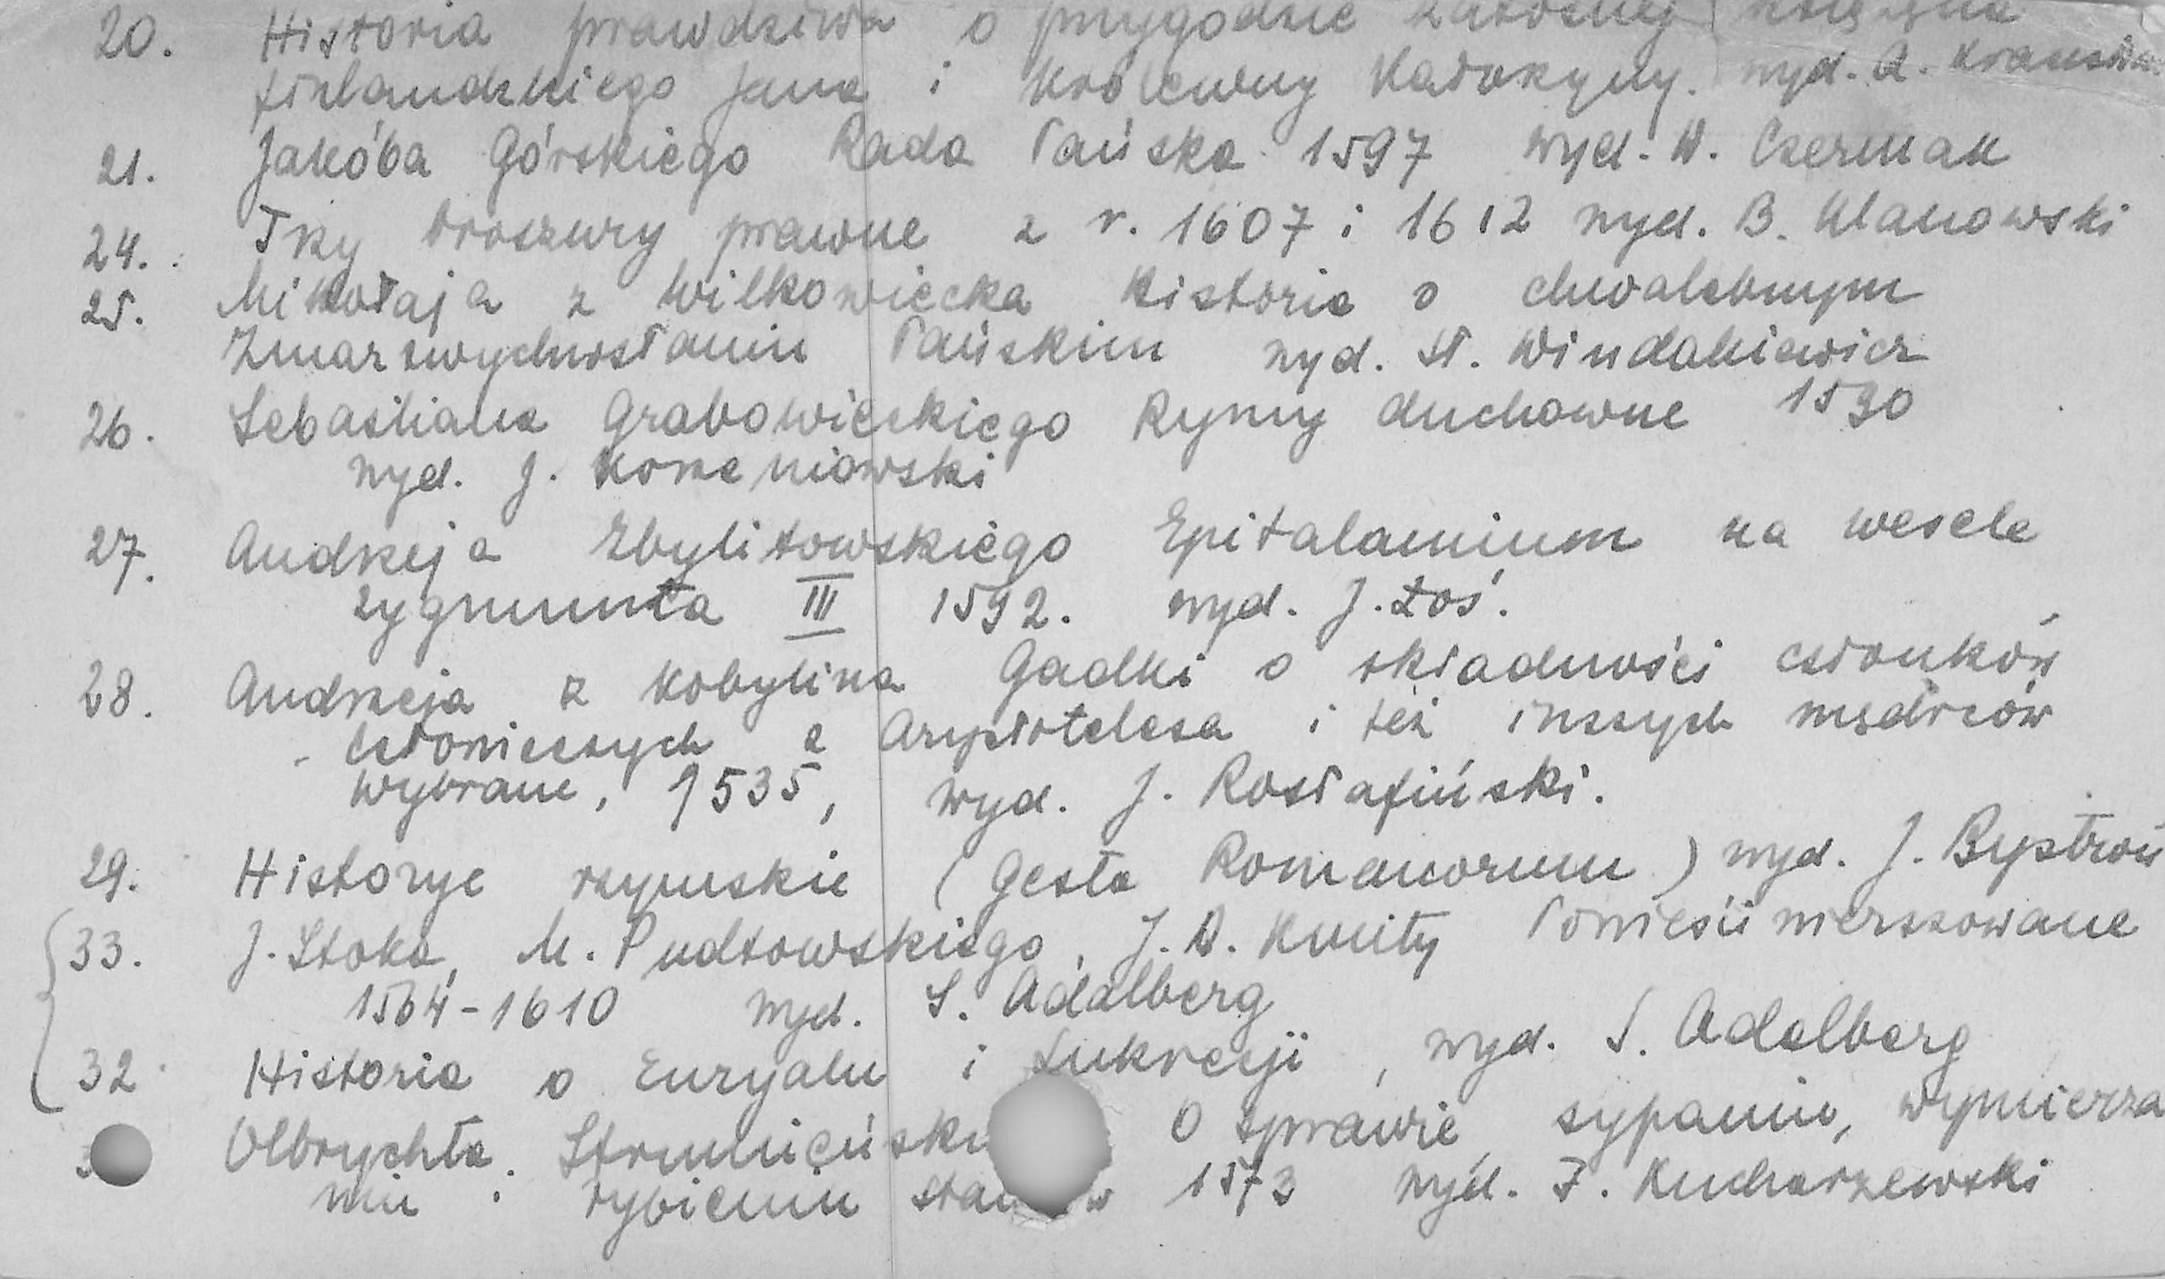 20. Historia prawdziwa o przygodzie żałosnej księżęcia
finlandzkiego Jana i królewny Katarzyny. wyd. A. Kraushar
21. Jakóba Górskiego Rada Pańska 1597 wyd. W. Czermak
24. Trzy broszury prawne z r. 1607 i 1612 wyd. B. Ulanowski
25. Mikołaja z Wilkowiecka Historia o chwalebnym
Zmartwychwstaniu Pańskim wyd. St. Windakiewicz
26. Sebastiana Grabowieckiego Rymy duchowne 1590
wyd. J. Korzeniowski
27. Andrzeja Zbylitowskiego Epitalamium na wesele
Zygmunta III 1592. wyd. J. Łoś.
28. Andrzeja z Kobylina Gadki o składności członków
człowieczych z Arystotelesa i też inszych mędrców
wybrane, 1535, wyd. J. Rostafiński.
29. Historye rzymskie (Gesta Romanorum) wyd. J. Bystroń
33. J. Stoka, M. Pudłowskiego, J. D. Kmity Powieści wierszowane
1564-1610 wyd. S. Adalberg
32 Historia o Euryalu i Lukrecji, wyd. S. Adalberg
Olbrychta Strumieński O sprawie, sypaniu, wymierza
niu i rybieniu stawów 1573 wyd. F. Kucharzewski